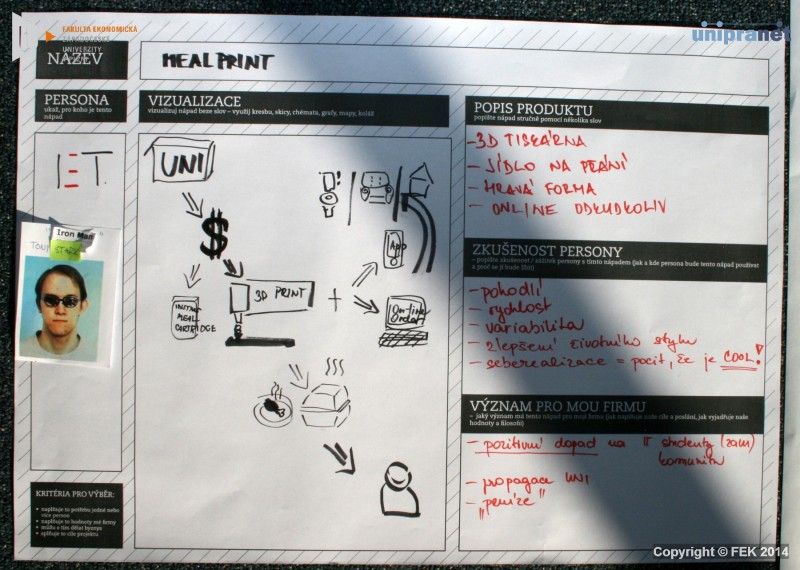 FAKULTA EKONOMICKÁ
ZÁPADOČESKÉ
UNIVERZITY
unipranet
NÁZEV
MEALPRINT
PERSONA
ukaž, pro koho je tento
nápad
VIZUALIZACE
vizualizuj nápad beze slov – využij kresbu, skicy, chémata, grafy, mapy, koláž
POPIS PRODUKTU
popište nápad stručně pomocí několika slov
IET
Iron Man
TONY STARK
UNI
$
INSTANT
MEAL
CARTRIDGE
3D PRINT
+
App
On-line
Order
- 3D TISKÁRNA
- JÍDLO NA PŘÁNÍ
- HRAVÁ FORMA
- ONLINE ODKUDKOLIV
ZKUŠENOST PERSONY
– popište zkušenost / zážitek persony s tímto nápadem (jak a kde persona bude tento nápad používat
a proč se jí bude líbit)
- pohodlí
- rychlost
- variabilita
- zlepšení životního stylu
- seberealizace = pocit, že je COOL!
VÝZNAM PRO MOU FIRMU
– jaký význam má tento nápad pro moji firmu (jak naplňuje naše cíle a poslání, jak vyjadřuje naše
hodnoty a filosofii)
- pozitivní dopad na IT studenty (zam)
komunita
- propagace UNI
- "peníze"
KRITÉRIA PRO VÝBĚR:
naplňuje to potřebu jedné nebo
více person
naplňuje to hodnoty mé firmy
můžu s tím dělat byznys
splňuje to cíle projektu
Copyright © FEK 2014